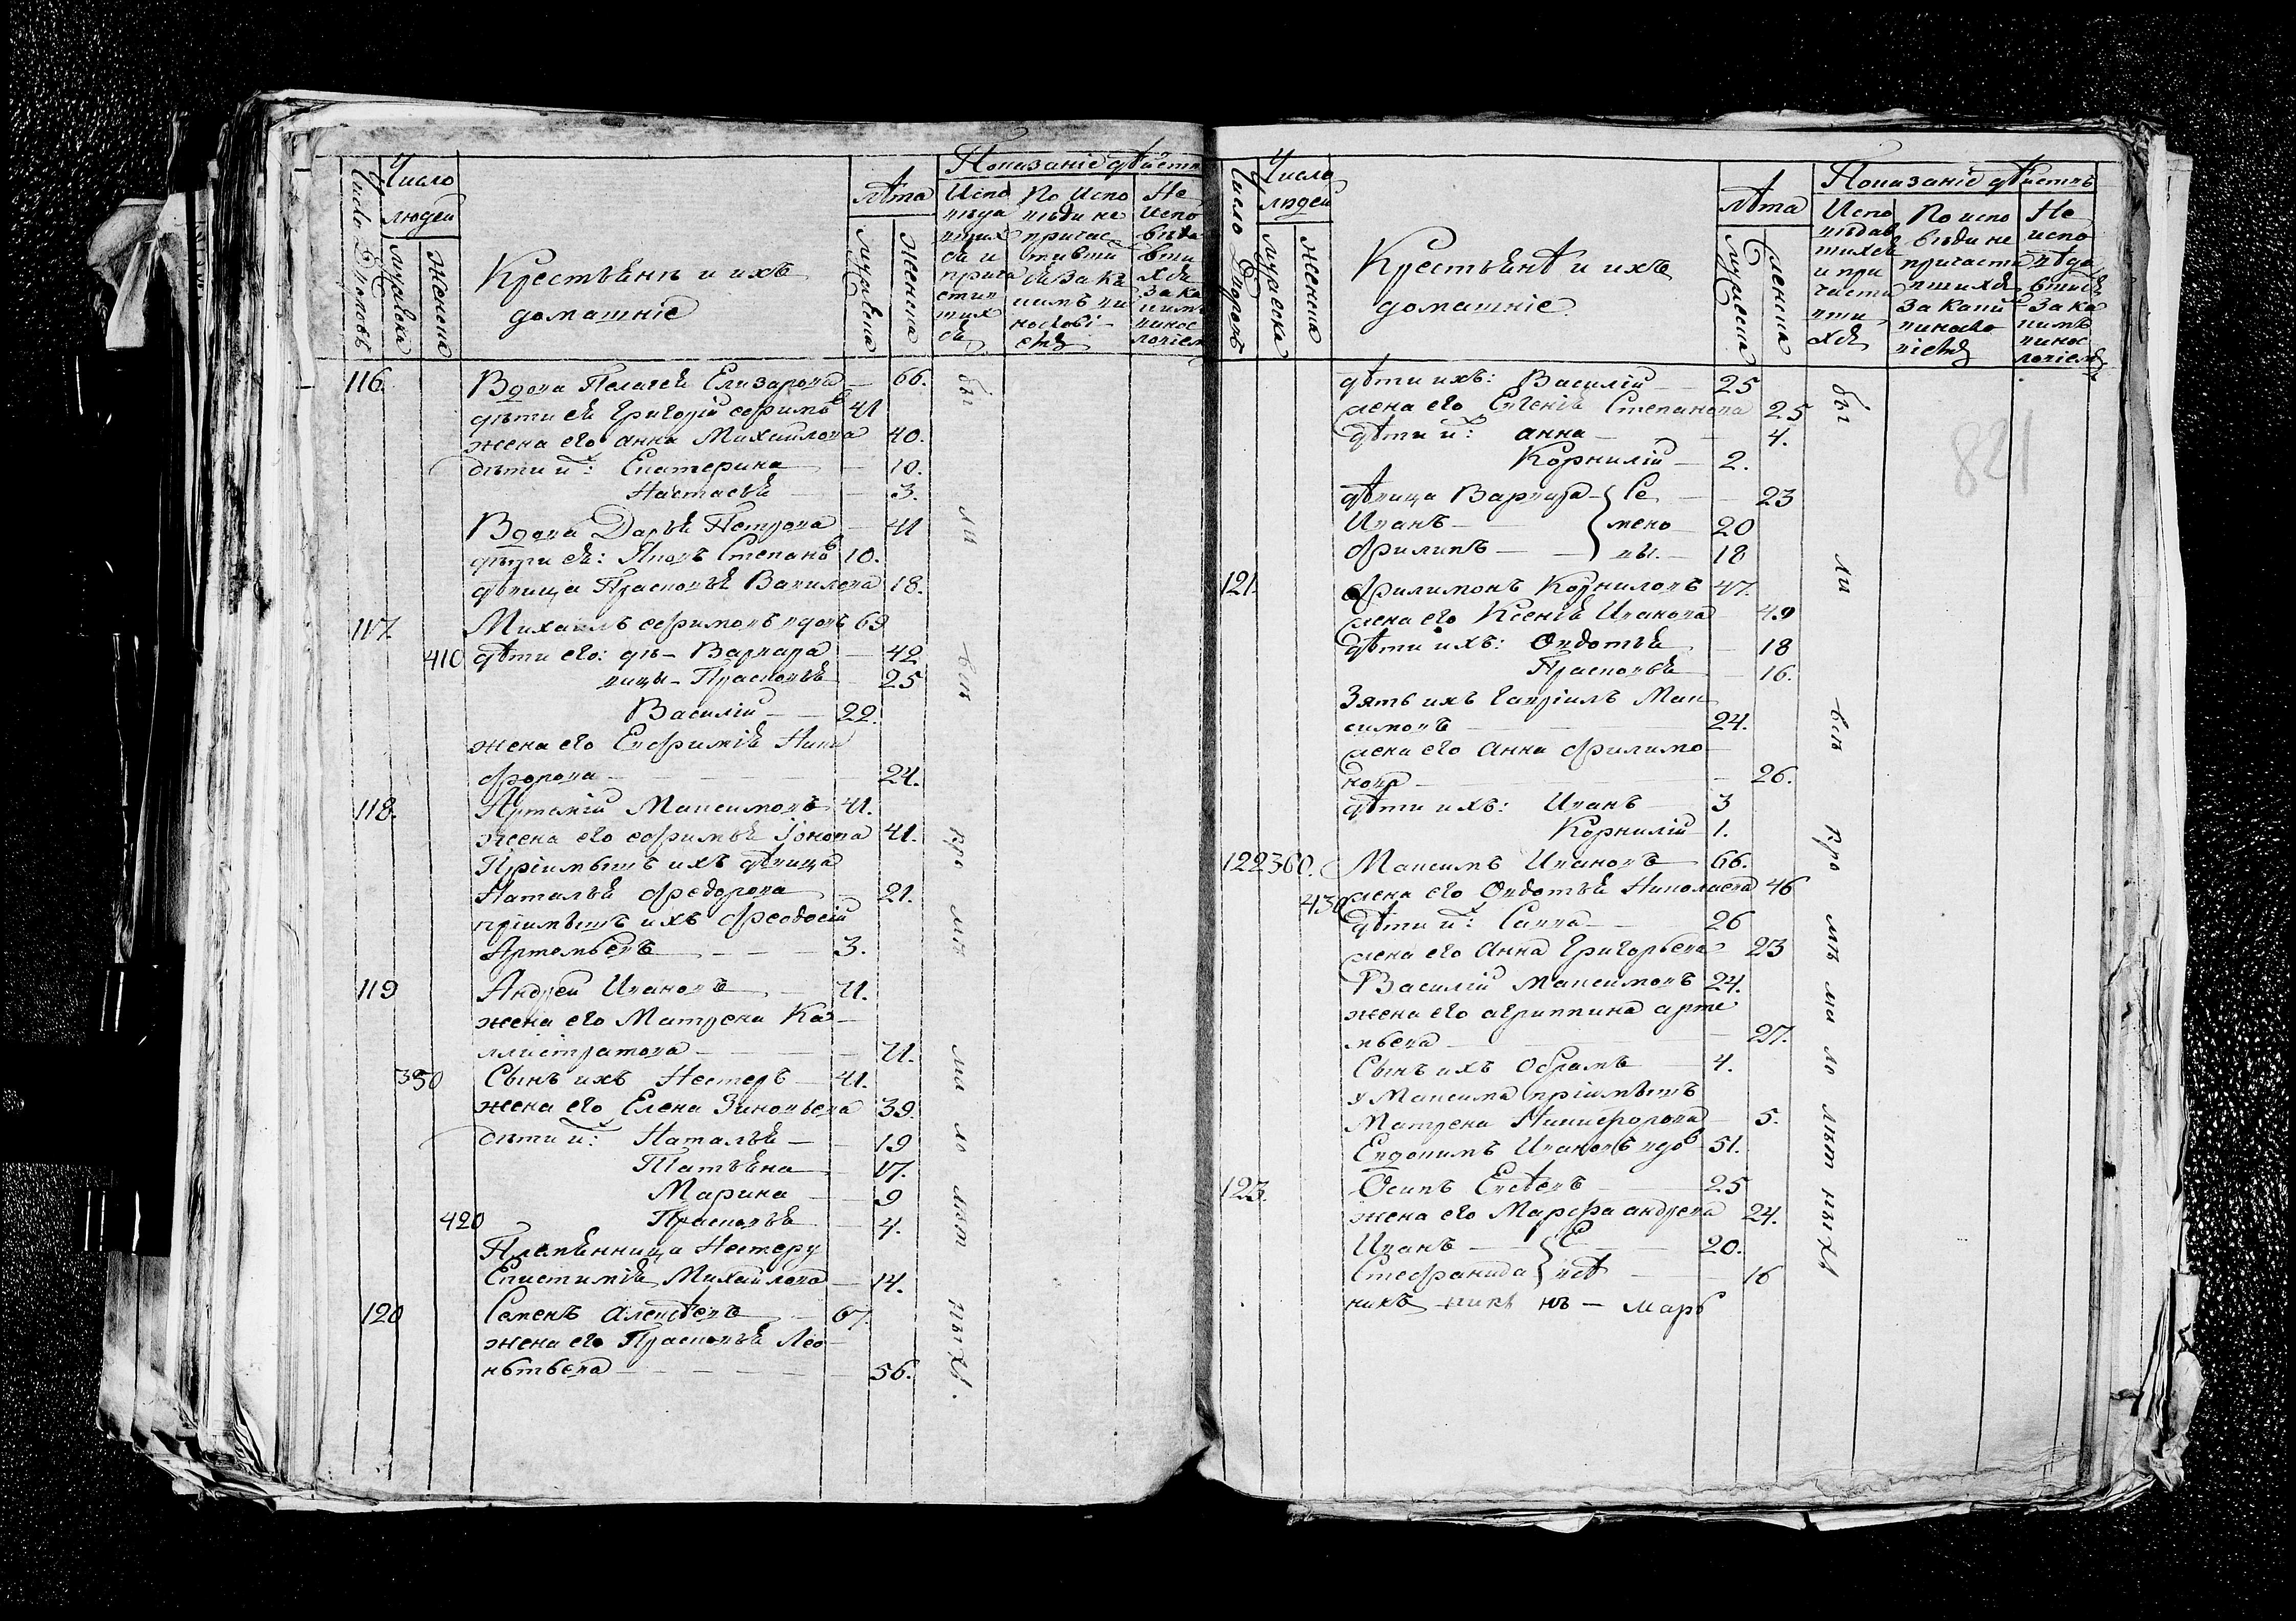 Число Дворовъ
Число людей
мужеска
женска
Крестьянъ и ихъ
домашніе
лѣта
мужеска
женска
Показаніе дѣйств
Испо
вѣда
вших
ся и
прича
стив
ших
ся
По Испо
вѣди не
причас
тивши
ся за ка
кимъ ви
нослові
емъ
Не
испо
вѣда
вши
хся
за ка
кимъ
винос
ловіем
116. Вдова Пелагея Елизарова — 66.
дѣти ея Григорій Ефимовъ 41
жена его анна Михаилова 40.
дѣти ихъ: Екатерина — 10.
Настасья — 3.
Вдова Дарья Петрова — 41
дѣти ея: Яковъ Степановъ 10.
дѣвица Прасковья Вавилова 18.
117. Михаилъ Ефимовъ вдовъ 69
410 дѣти его: дѣ– Варвара — 42
вицы– Прасковья — 25
Василій — 22.
жена его Евфимія Ники
форова — 24.
118. Артемій Максимовъ 41.
жена его Ефимья Іонова 41.
Пріимышъ ихъ дѣвица
Наталья Федорова — 21.
пріимышъ ихъ Феодосій
Артемьевъ — 3.
119 Андрей Ивановъ — 71.
жена его Матрена Ка–
ллистратова — 71.
350 Сынъ ихъ Нестеръ — 41.
жена его Елена Зиновьева 39.
дѣти ихъ: Наталья — 19
Татьяна — 17.
Марина — 9
420 Прасковья — 4.
Племянница Нестеру
Епистимія Михайлова — 14.
120 Семенъ Алексѣевъ — 67.
жена его Прасковья Лео–
нтьева — 56.
бы ли все вре мя ма ло лѣт ныхъ.
Число Дворовъ
Число людей
мужеска
женска
Крестьянѣ и ихъ
домашніе.
лѣта
мужеска
женска
Показаніе дѣйствъ
Испо
вѣдав
шихся
и при
части
вши
хся
По испо
вѣди не
причасти
вшихся
за каки
виносло
віемъ
Не
испо
вѣда
вшихся
за ка
кимъ
винос
ловіемъ
821
дѣти ихъ: Василій — 25
жена его Евгенія Степанова 25
дѣти ихъ: анна — 4.
Корнилій — 2.
дѣвица Варвара { Се — 23
Иванъ — { мено 20
Филипъ — } вы. — 18
121. Филимонъ Корниловъ 47.
жена его Ксенія Иванова 49
дѣти ихъ: Овдотья — 18
Прасковья — 16.
Зять ихъ Гаврiилъ Мак
симовъ — 24.
жена его Анна Филимо–
нова — 26.
дѣти ихъ: Иванъ 3
Корнилій 1.
122 360. Максимъ Ивановъ 66.
430 жена его Овдотья Николаева 46
дѣти ихъ: Савва — 26
жена его Анна Григорьева 23
Василій Максимовъ 24.
жена его агриппина арте
мьева — 27.
Сынъ ихъ Обрамъ 4.
у Максима пріимышъ
Матрена Никифорова — 5.
Евдокимъ Ивановъ вдовъ 51.
123. Осипъ Евсѣевъ — 25
жена его Марфа андреева 24.
Иванъ — { Е — 20.
Стефанида } всѣ — 16
бы ли все вре мя ма ло лѣт ныхъ